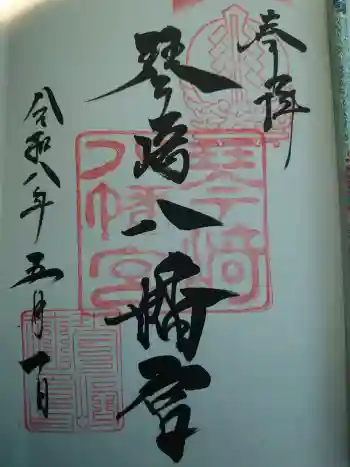 奉拝
琴崎八幡宮
令和八年五月一日
琴崎八幡宮